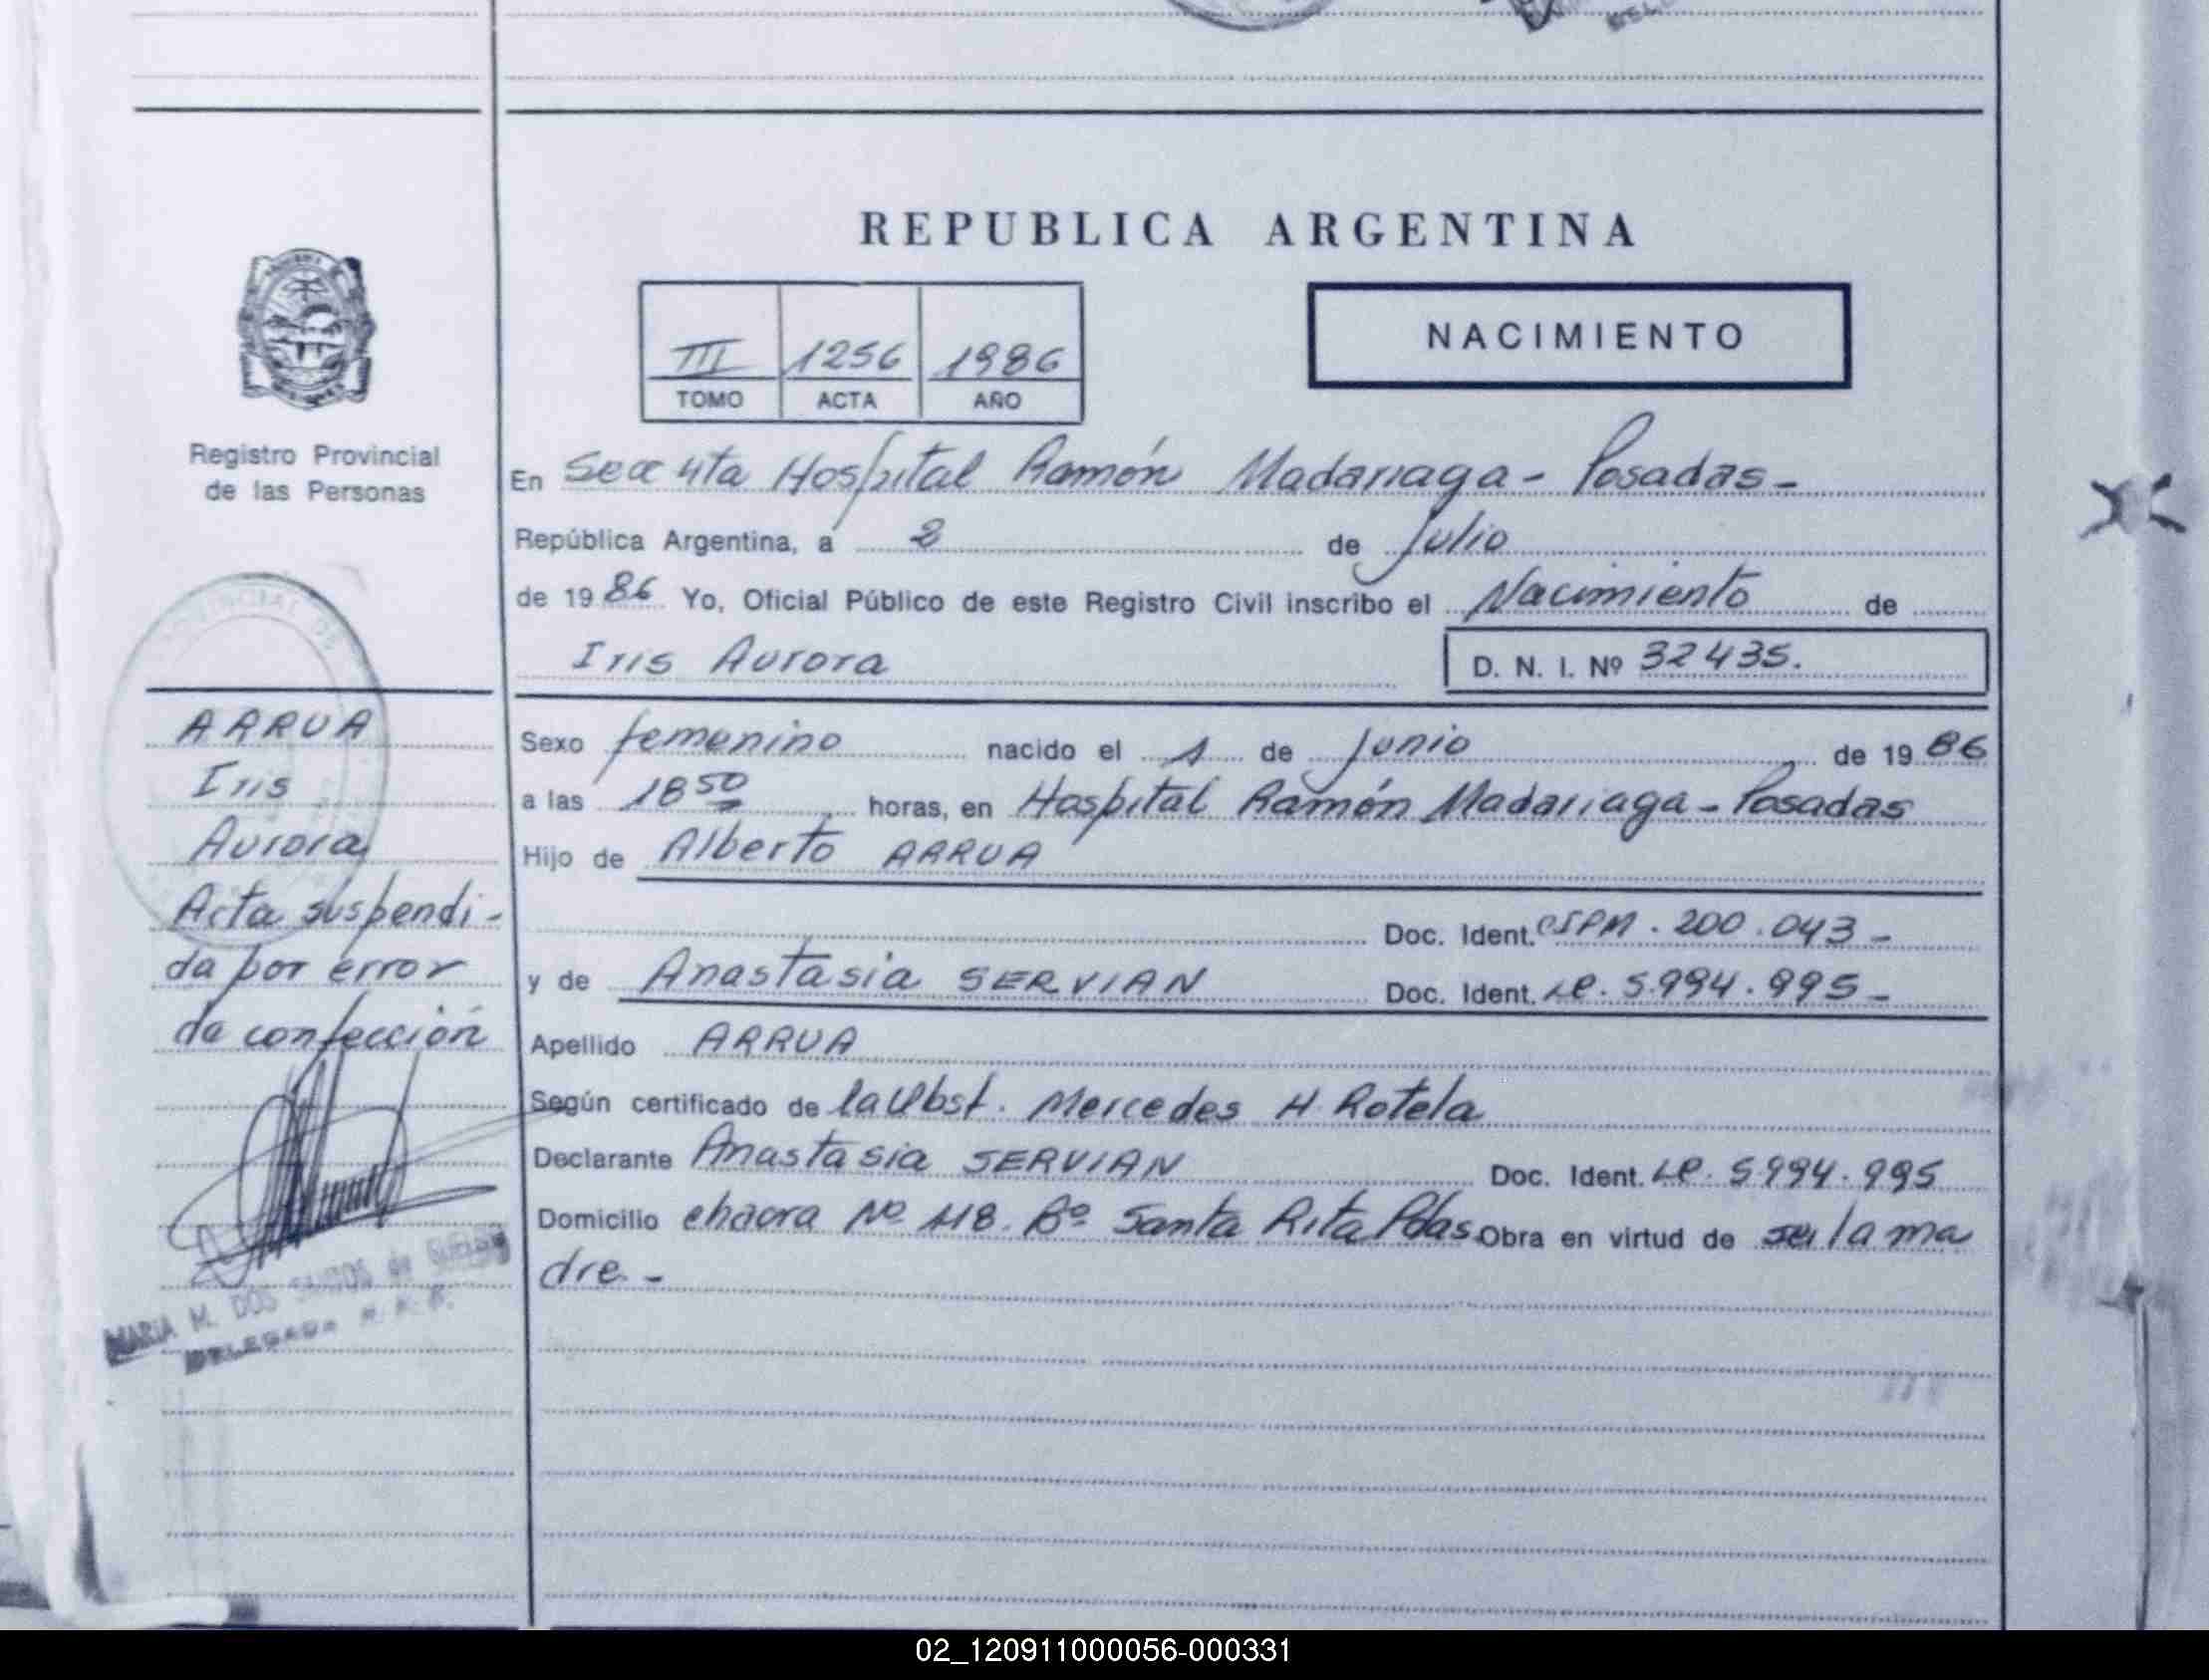 REPUBLICA ARGENTINA
III 1256 1986
TOMO ACTA AÑO
NACIMIENTO
Registro Provincial
de las Personas
En Secc 4ta Hospital Ramón Madariaga - Posadas -
República Argentina, a 2 de Julio
de 1986 Yo, Oficial Público de este Registro Civil inscribo el Nacimiento de
Iris Aurora D. N. I. Nº 32435.
ARRUA
Iris
Aurora
Acta suspendi-
da por error
de confección
MARIA M. DOS SANTOS de
DELEGADA R. P. P.
Sexo femenino nacido el 1 de Junio de 1986
a las 18 50 horas, en Hospital Ramón Madariaga - Posadas
Hijo de Alberto ARRUA
Doc. Ident. CIPM. 200.043 -
y de Anastasia SERVIAN Doc. Ident. LC. 5.994.995 -
Apellido ARRUA
Según certificado de la Obst. Mercedes H. Rotela
Declarante Anastasia SERVIAN Doc. Ident. LC. 5994.995
Domicilio chacra Nº 118. Bº Santa Rita Pdas. Obra en virtud de ser la ma
dre. -
02_120911000056-000331